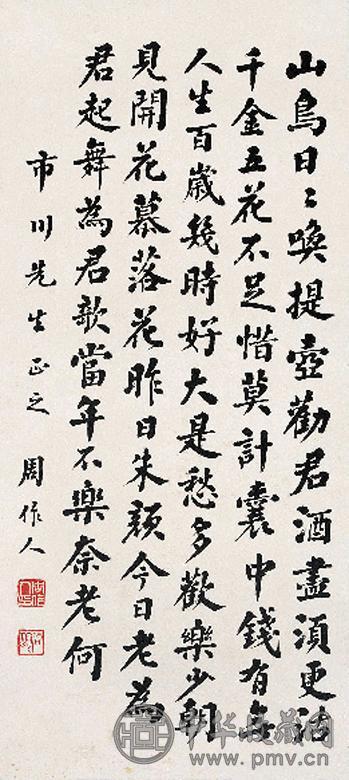 山鳥日〻喚提壺勸君酒盡須更沽
千金五花不足惜莫計囊中錢有無
人生百歲幾時好大是愁多歡樂少朝
見開花暮落花昨日朱顏今日老為
君起舞為君歌當年不樂奈老何
市川先生正之 周作人
中华收藏网
www.pmv.cn